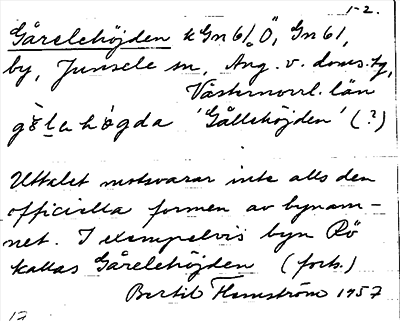 1-2.
Gårelehöjden k Gn 61 Ö, Gn 61,
by, Junsele sn, Ång. v. doms. tg,
Västernorrl. län
gɔ̀ḷa hǿgda 'Gållehöjden' (?)
Uttalet motsvarar inte alls den
officiella formen av bynam-
net. I exempelvis byn Rö
kallas Gårelehöjden (forts.)
Bertil Flemström 1957
17